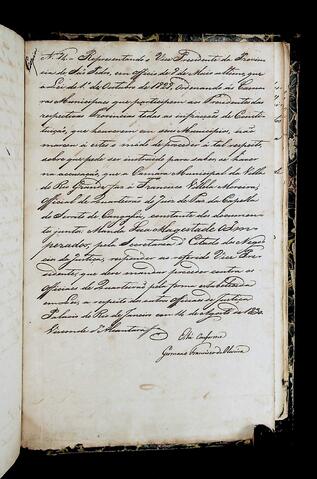 N. 11. Representando o Vice Presidente da Provin
cia de São Pedro, em officio de 7 de Maio ultimo, que
a Lei do 1º de Outubro de 1828, Ordenando ás Cama
ras Municipaes que participem aos Presidentes das
respectivas Provincias todas as infracções de Consti
tuição, que houverem em seus Municipios, não
marca a estes o modo de proceder a tal respeito,
sobre que pede ser instruido para saber se haver
na accusação, que a Camara Municipal da Villa
do Rio Grande faz a Francisco Moreira,
Official de Quarteirão do Juiz de Paz da Capella
do Serrito de Canguçú, constante dos documen
tos juntos. Manda Sua Magestade o Im
perador, pela Secretaria d'Estado dos Nego
cios da Justiça, responder ao referido Vice Pre
sidente, que deve mandar proceder contra os
Officiaes de Quarteirão pela forma estabelecida
em Lei, a respeito dos outros officiaes de Justiça
Palacio do Rio de Janeiro em 14 de Agosto de 1830
Visconde d'Alcantara
Está conforme
Germano Francisco de Oliveira